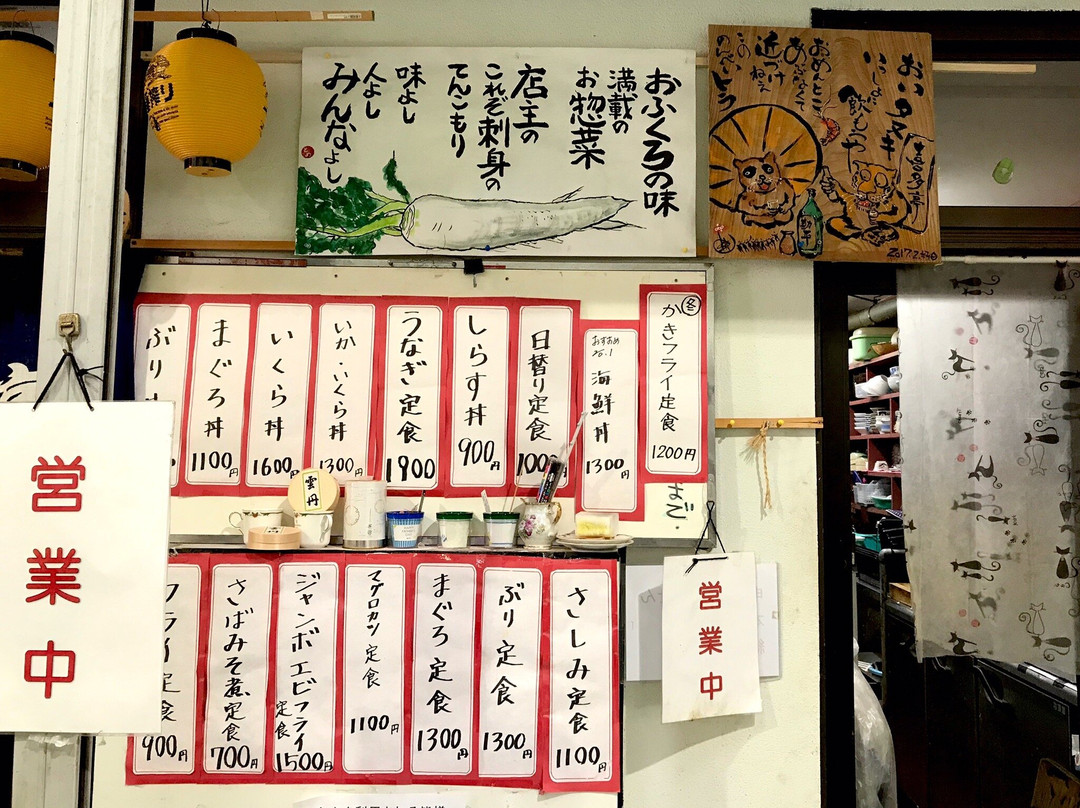 おふくろの味
満載の
お惣菜
店主の
これぞ刺身の
てんこもり
味よし
人よし
みんなよし
おいタヌキ
いっしょに
飲もうや
おめんとこ
あぶなくて
近づけねえ
この
のんべいトラ
喜多亭
冬
かきフライ定食
1200円
まで。
おすすめ
海鮮丼
1300円
日替り定食
しらす丼
900円
うなぎ定食
1900円
いか・いくら丼
1300円
いくら丼
1600円
まぐろ丼
1100円
ぶり
雲丹
さしみ定食
1100円
ぶり定食
1300円
まぐろ定食
1300円
マグロカツ定食
1100円
ジャンボエビフライ
定食
1500円
さばみそ煮定食
700円
フライ定食
900円
営業中
営業中